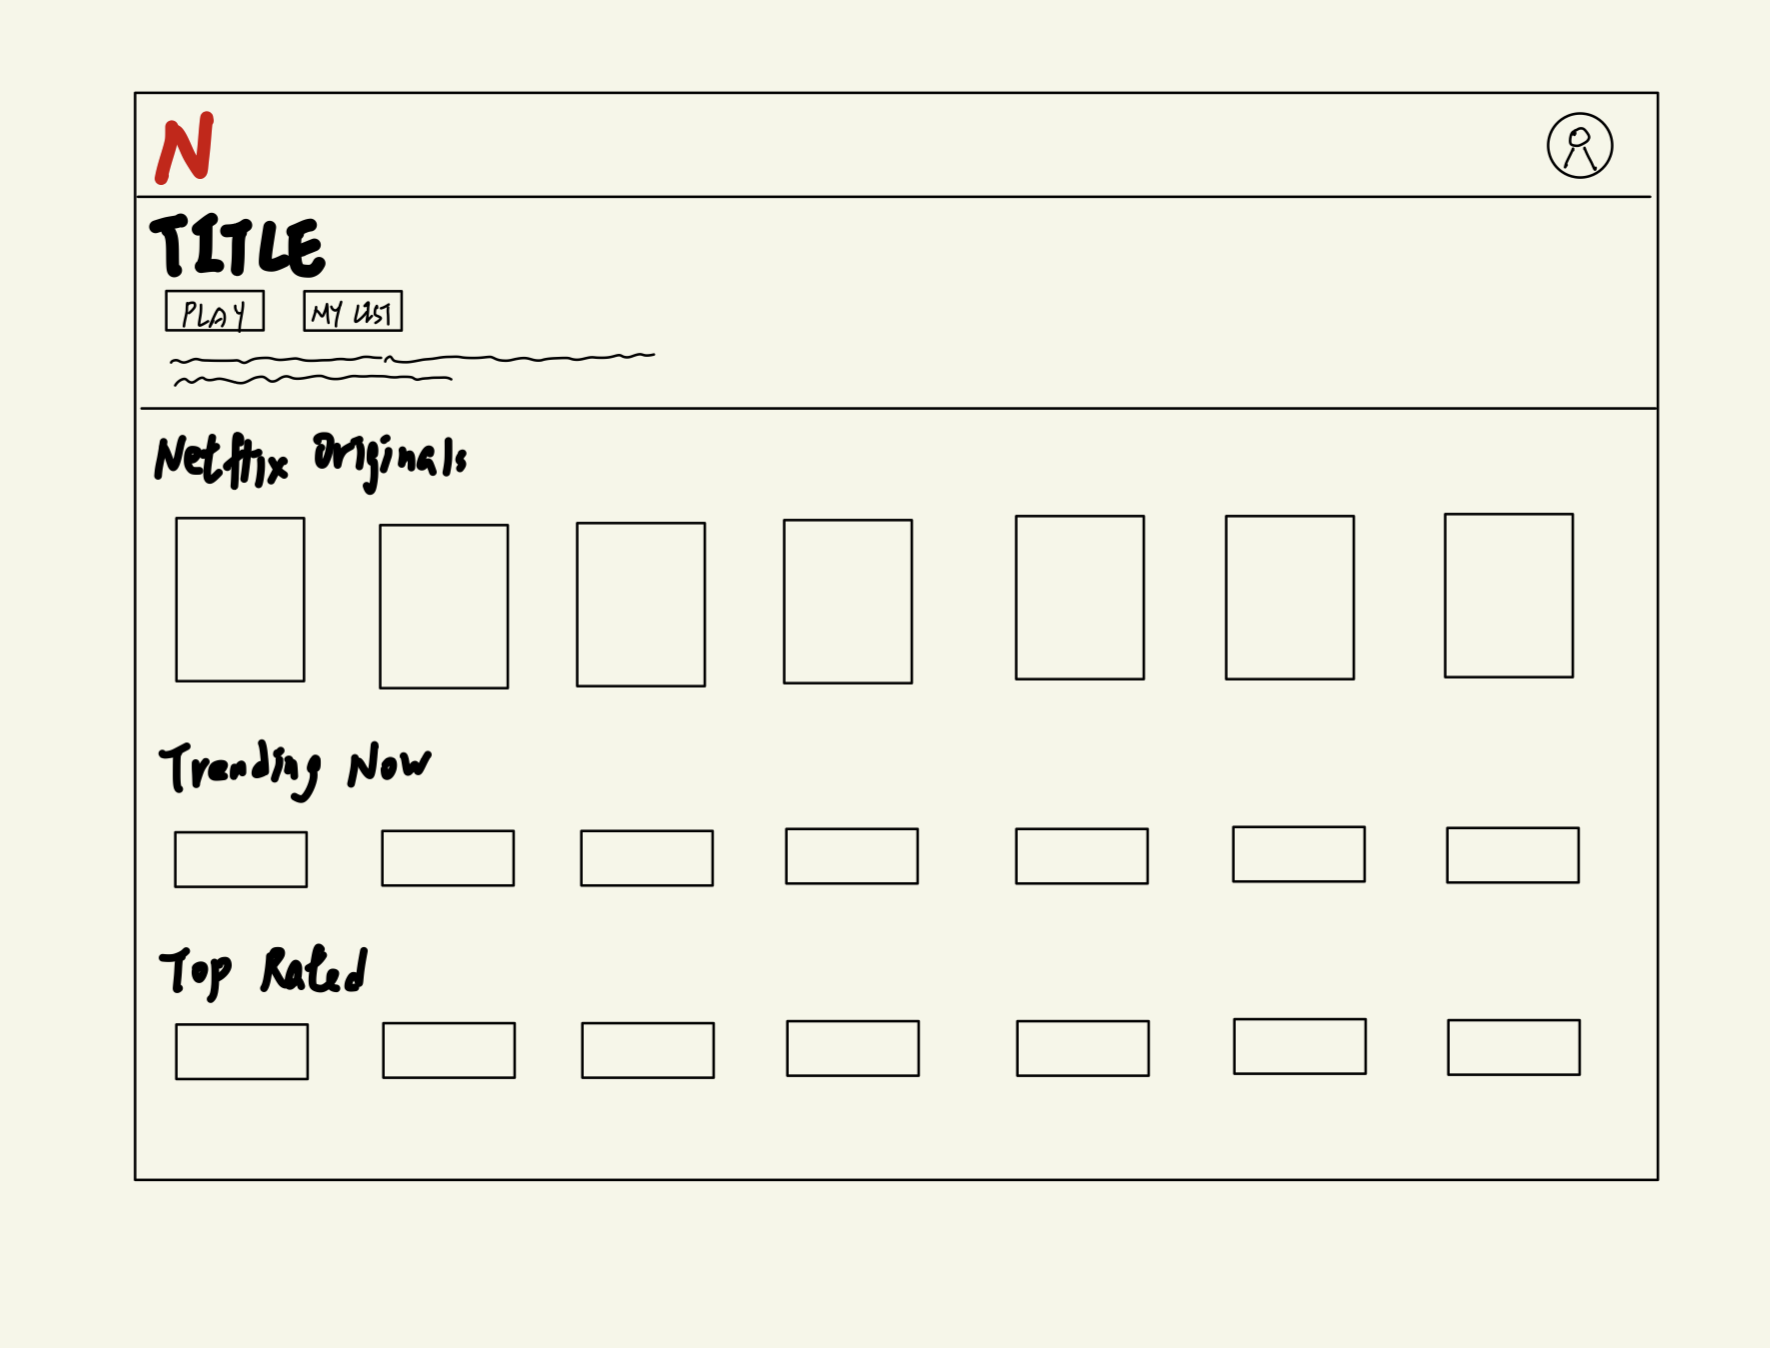 N
TITLE
PLAY MY LIST
Netflix Originals
Trending Now
Top Rated